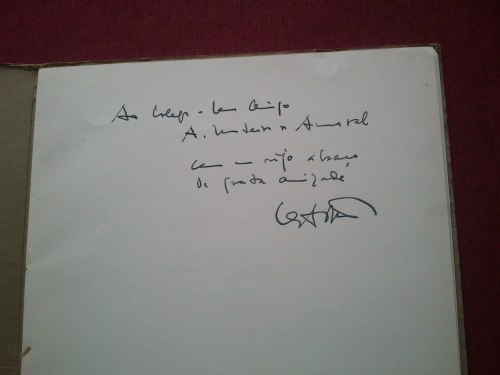 Ao Colega e bom Amigo
A. Monteiro do Amaral
com um rijo abraço
de grata amizade